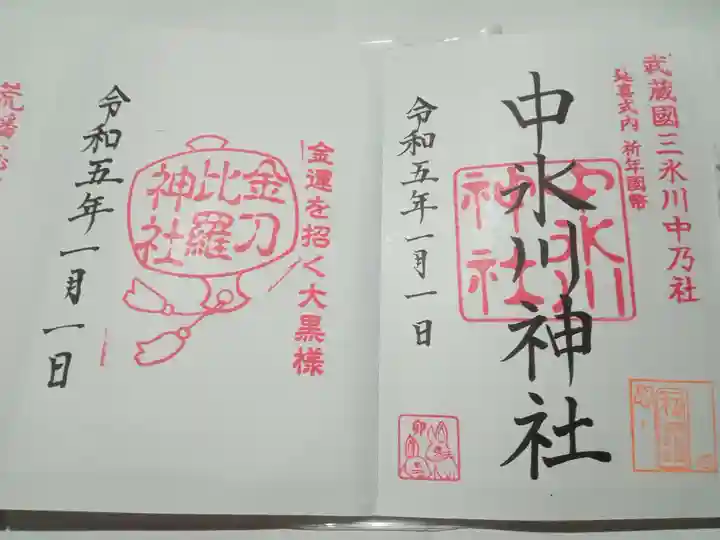 武蔵國三氷川中乃社
延喜式内 祈年國幣
中氷川神社
中氷川神社
令和五年一月一日
卯
金運を招く大黒様
金刀比羅神社
令和五年一月一日